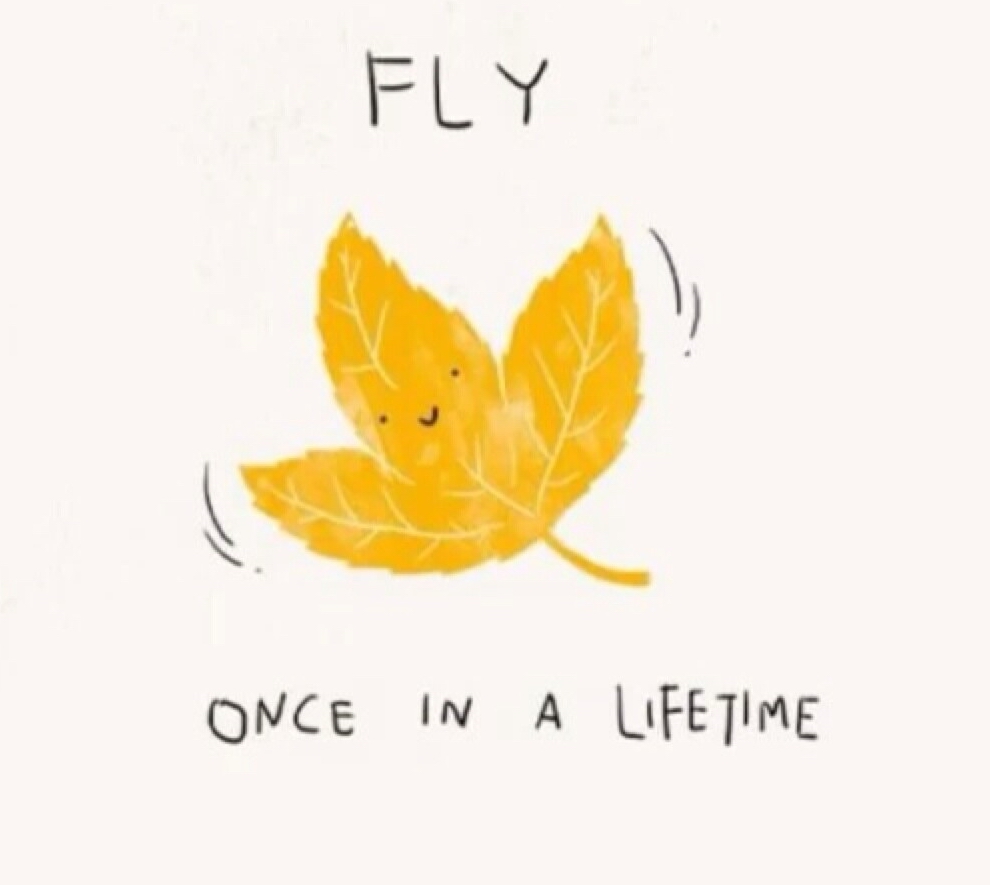 FLY
ONCE IN A LIFETIME